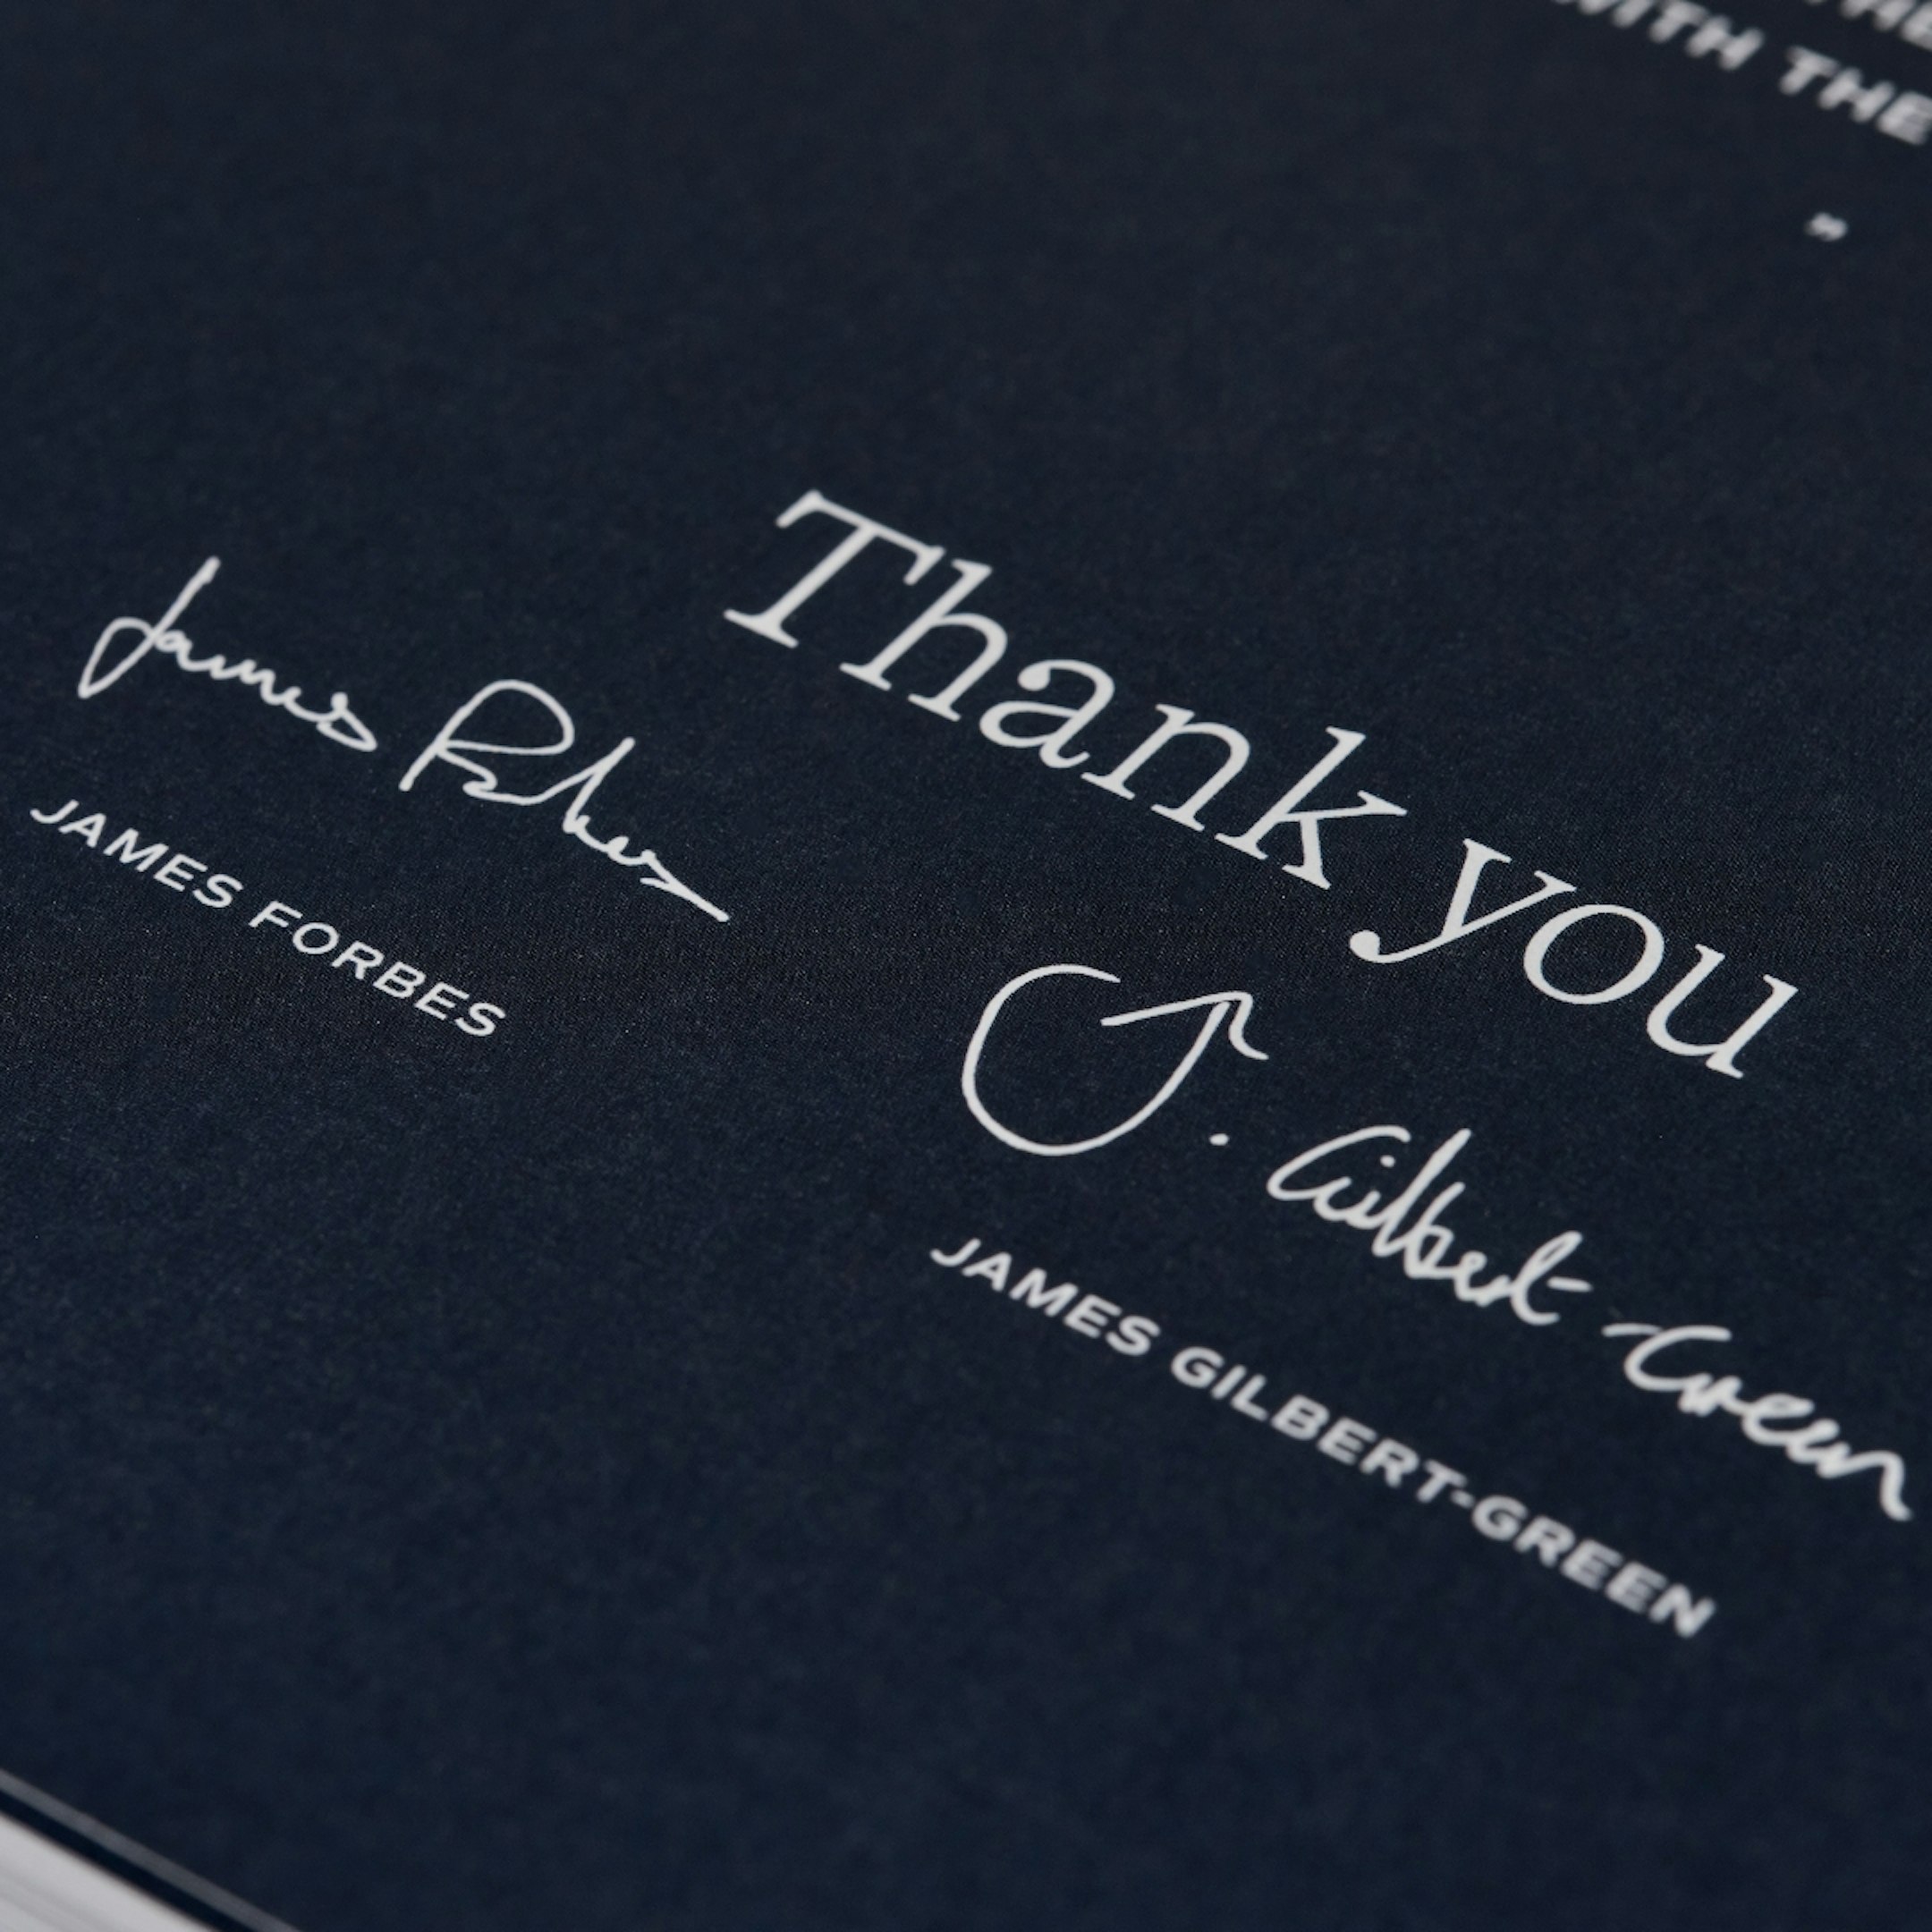 THE
WITH THE
"
Thank you
James Forbes
JAMES FORBES
J. Gilbert-Green
JAMES GILBERT-GREEN